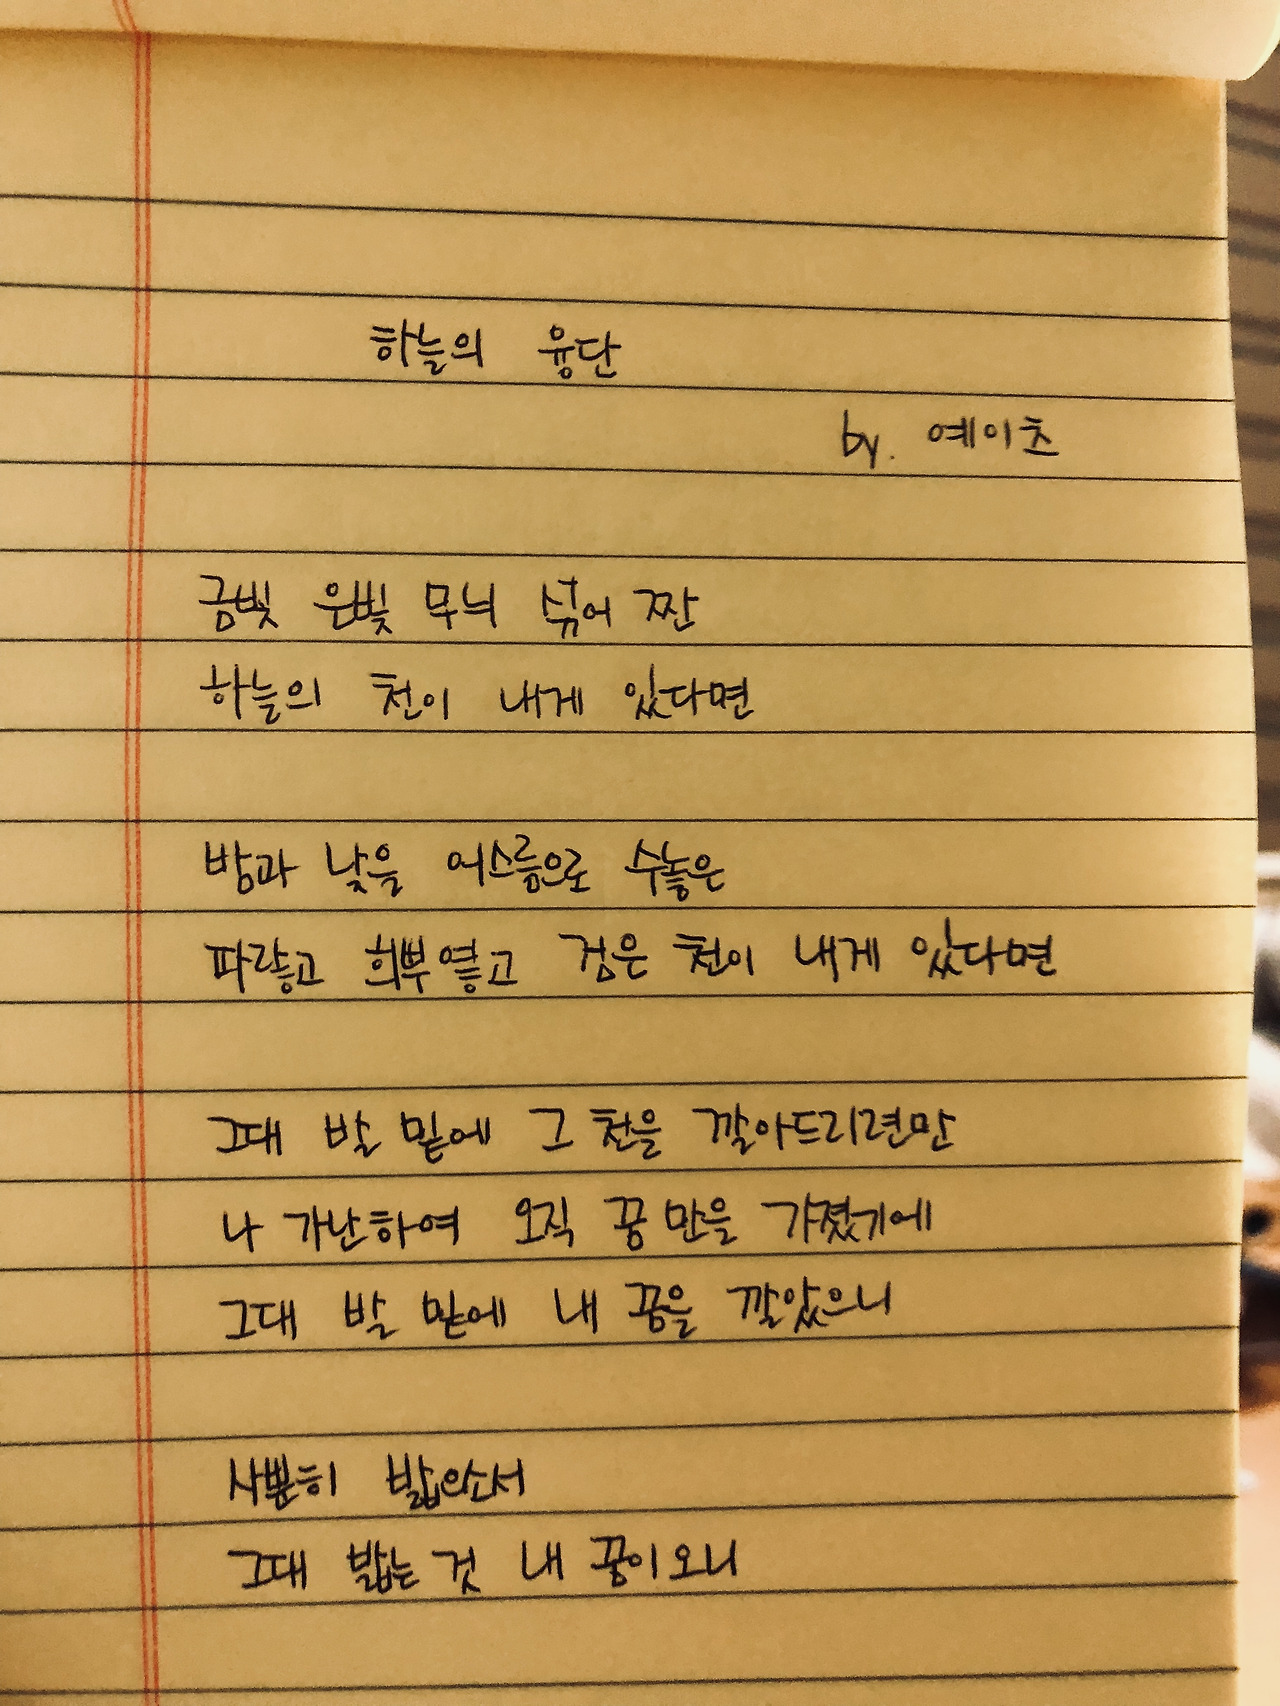 하늘의 융단
by. 예이츠
금빛 은빛 무늬 섞어 짠
하늘의 천이 내게 있다면
밤과 낮을 어스름으로 수놓은
파랗고 희부옇고 검은 천이 내게 있다면
그대 발 밑에 그 천을 깔아드리련만
나 가난하여 오직 꿈만을 가졌기에
그대 발 밑에 내 꿈을 깔았으니
사뿐히 밟으소서
그대 밟는 것 내 꿈이오니